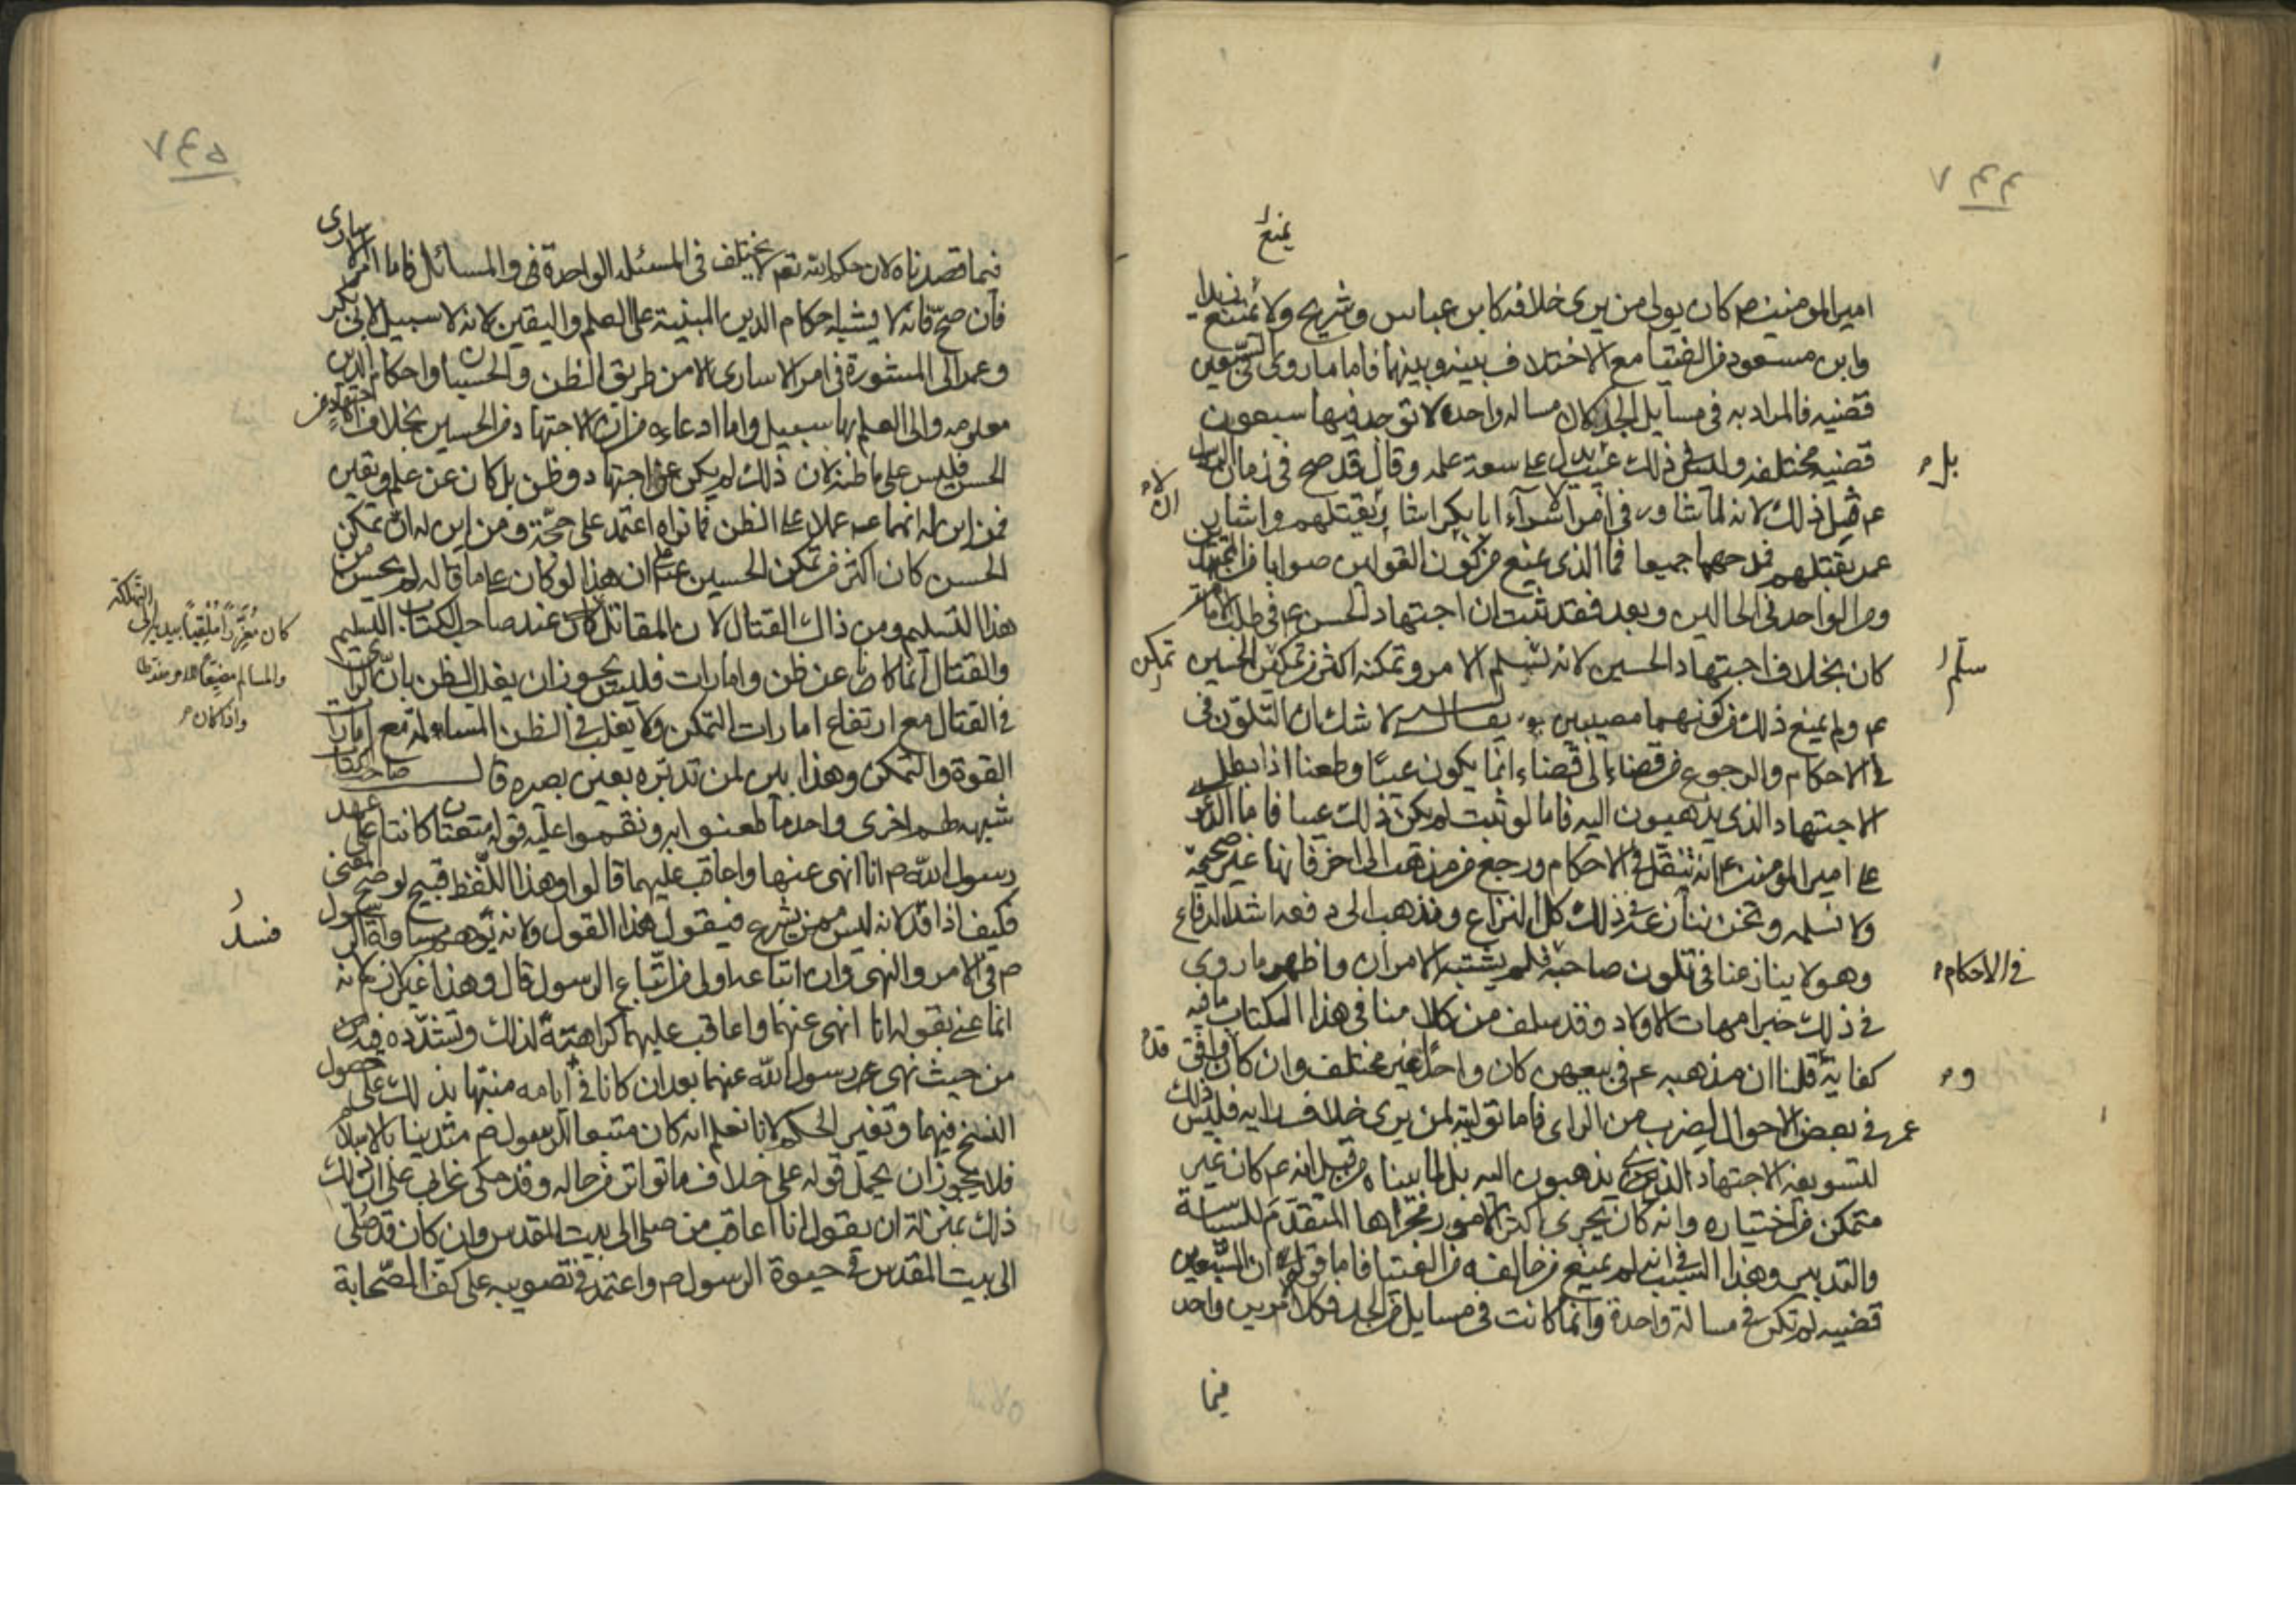 ٨٤٤
يمنع
امير المومنين ص كان يولى من يرى خلافه كابن عباس وشريح ولا يمنع زيدا
وابن مسعود من الفتيا مع الاختلاف بينه وبينهما فاما ما روى السبعين
قضيه فالمراد به فى مسايل الجد كان مساله واحده لا توجد فيها سبعون
قضيه مختلفه وليس فى ذلك عيب بل يدل على سعة علمه وقال قد صح فى زمان الرسول
بل
عم قبل ذلك لانه لما شاور فى امر الاسرآء ابا بكر اشار ان لا يقتلهم واشار
عمر بقتلهم فمدحهما جميعا فما الذى يمنع من كون القولين صوابا من المجتهدين
ومن الواحد فى الحالين وبعد فقد ثبت ان اجتهاد الحسن عم فى طلب الامامة
كان بخلاف اجتهاد الحسين لانه سلم الامر وتمكنه اكثر من تمكن الحسين
سلم
تمكن
عم ولم يمنع ذلك من كونهما مصيبين يقال له لا شك ان التلون فى
فى الاحكام والرجوع من قضاء الى قضاء انما يكون عيبا وطعنا اذا بطل
الاجتهاد الذى يذهبون اليه فاما لو ثبت لم يكن ذلك عيبا فاما الدعوى
على امير المومنين عم انه تنقل فى الاحكام ورجع من مذهب الى اخر فانها غير صحيحة
ولا نسلمه ونحن ننازع فى ذلك كل النزاع ونذهب الى دفعه اشد الدفاع
وهو لا ينازعنا فى تلون صاحبه فلم يشتبه الامران واظهر ما روى
فى الاحكام
فى ذلك خبر امهات الاولاد وقد سلف من كلامنا فى هذا الكتاب ما فيه
كفاية قلنا ان مذهبه عم فى بيعهن كان واحدا غير مختلف وان كان وافق
و
قد
عمر فى بعض الاحوال لضرب من الراى فاما توليته لمن يرى خلاف رايه فليس ذلك
لتسويغه الاجتهاد الذى يذهبون اليه بل لما بيناه من قبل انه عم كان غير
متمكن من اختياره وانه كان يجرى اكثر الامور مجراها المتقدم للسياسة
والتدبير وهذا السبب فى انه لم يمنع من خالفه من الفتيا فاما قوله ان السبعين
قضيه لم تكن فى مسالة واحدة وانما كانت فى مسايل من الجد فكلا الامرين واحد
فيما
٨٤٥
فيما قصدناه لان حكم الله تعم لا يختلف فى المسئله الواحدة فى والمسائل فاما امر الاسارى
فان صح فانه لا يشبه احكام الدين المبنية على العلم واليقين لانه لا سبيل لابى بكر
وعمر الى المشورة فى امر الاسارى الا من طريق الظن والحسبان واحكام الدين
معلومه والى العلم بها سبيل واما ادعاءه من ان الاجتهاد من الحسين بخلاف اجتهاد
الحسن فليس على ما ظنه لان ذلك لم يكن عن اجتهاد وظن بل كان عن علم ويقين
فمن اين له انهما عملا على الظن فما نراه اعتمد على حجة ومن اين له ان تمكن
الحسن كان اكثر من تمكن الحسين على ان هذا لو كان على ما قاله لم يحسن من
هذا التسليم ومن ذاك القتال لان المقاتل كان عند صاحب الكتاب التسليم
كان مغررا ملقيا بيديه الى التهلكة
والمسالم مضيقا للامر مفرطا
واذا كان
والقتال انما كانا عن ظن وامارات فليس يجوز ان يغلب الظن بان
فى القتال مع ارتفاع امارات التمكن ولا يغلب فى الظن المسالمة مع امارات
القوة والتمكن وهذا بين لمن تدبره بعين بصره قال صاحب الكتاب
شبهه لهم اخرى واحد ما طعنوا به ونقموا عليه قوله متعتان كانتا على عهد
رسول الله ص انا انهى عنهما واعاقب عليهما قالوا وهذا اللفظ قبيح لو صح المعنى
فكيف اذا فسد لانه ليس ممن يشرع فيقول هذا القول ولانه يوهم مساواة الرسول
فسد
ص فى الامر والنهى وان اتباعه اولى من اتباع الرسول قال وهذا غير لازم لانه
انما عنى بقوله انا انهى عنهما واعاقب عليهما كراهته لذلك وتشدده فيه
من حيث نهى رسول الله عنهما بعد ان كانا فى ايامه منبها بذلك على حصول
النسخ فيهما وتغير الحكم لانا نعلم انه كان متبعا للرسول ص متدينا بالاسلام
فلا يجوز ان يحمل قوله على خلاف ما تواتر من حاله وقد حكى عن ابى على ان ذلك
ذلك بمنزلة ان يقول انا اعاقب من صلى الى بيت المقدس وان كان قد صلى
الى بيت المقدس فى حيوة الرسول ص واعتمد فى تصويبه على كف الصحابة